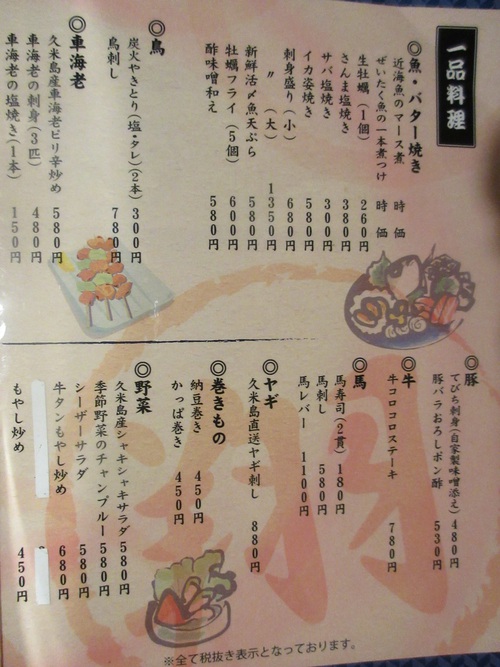 一品料理
◎魚・バター焼き
近海魚のマース煮 時価
ぜいたく魚の一本煮つけ 時価
生牡蠣(1個) 260円
さんま塩焼き 380円
サバ塩焼き 300円
イカ姿焼き 580円
刺身盛り(小) 680円
〃 (大) 1350円
新鮮活〆魚天ぷら 580円
牡蠣フライ(5個) 600円
酢味噌和え 580円
◎鳥
炭火やきとり(塩・タレ)(2本) 300円
鳥刺し 780円
◎車海老
久米島産車海老ピリ辛炒め 580円
車海老の刺身(3匹) 480円
車海老の塩焼き(1本) 150円
◎豚
てびち刺身(自家製味噌添え) 480円
豚バラおろしポン酢 530円
◎牛
牛コロコロステーキ 780円
◎馬
馬寿司(2貫) 180円
馬刺し 580円
馬レバー 1100円
◎ヤギ
久米島直送ヤギ刺し 880円
◎巻きもの
納豆巻き 450円
かっぱ巻き 450円
◎野菜
久米島産シャキシャキサラダ 580円
季節野菜のチャンプルー 580円
シーザーサラダ 580円
牛タンもやし炒め 680円
もやし炒め 450円
※全て税抜き表示となっております。